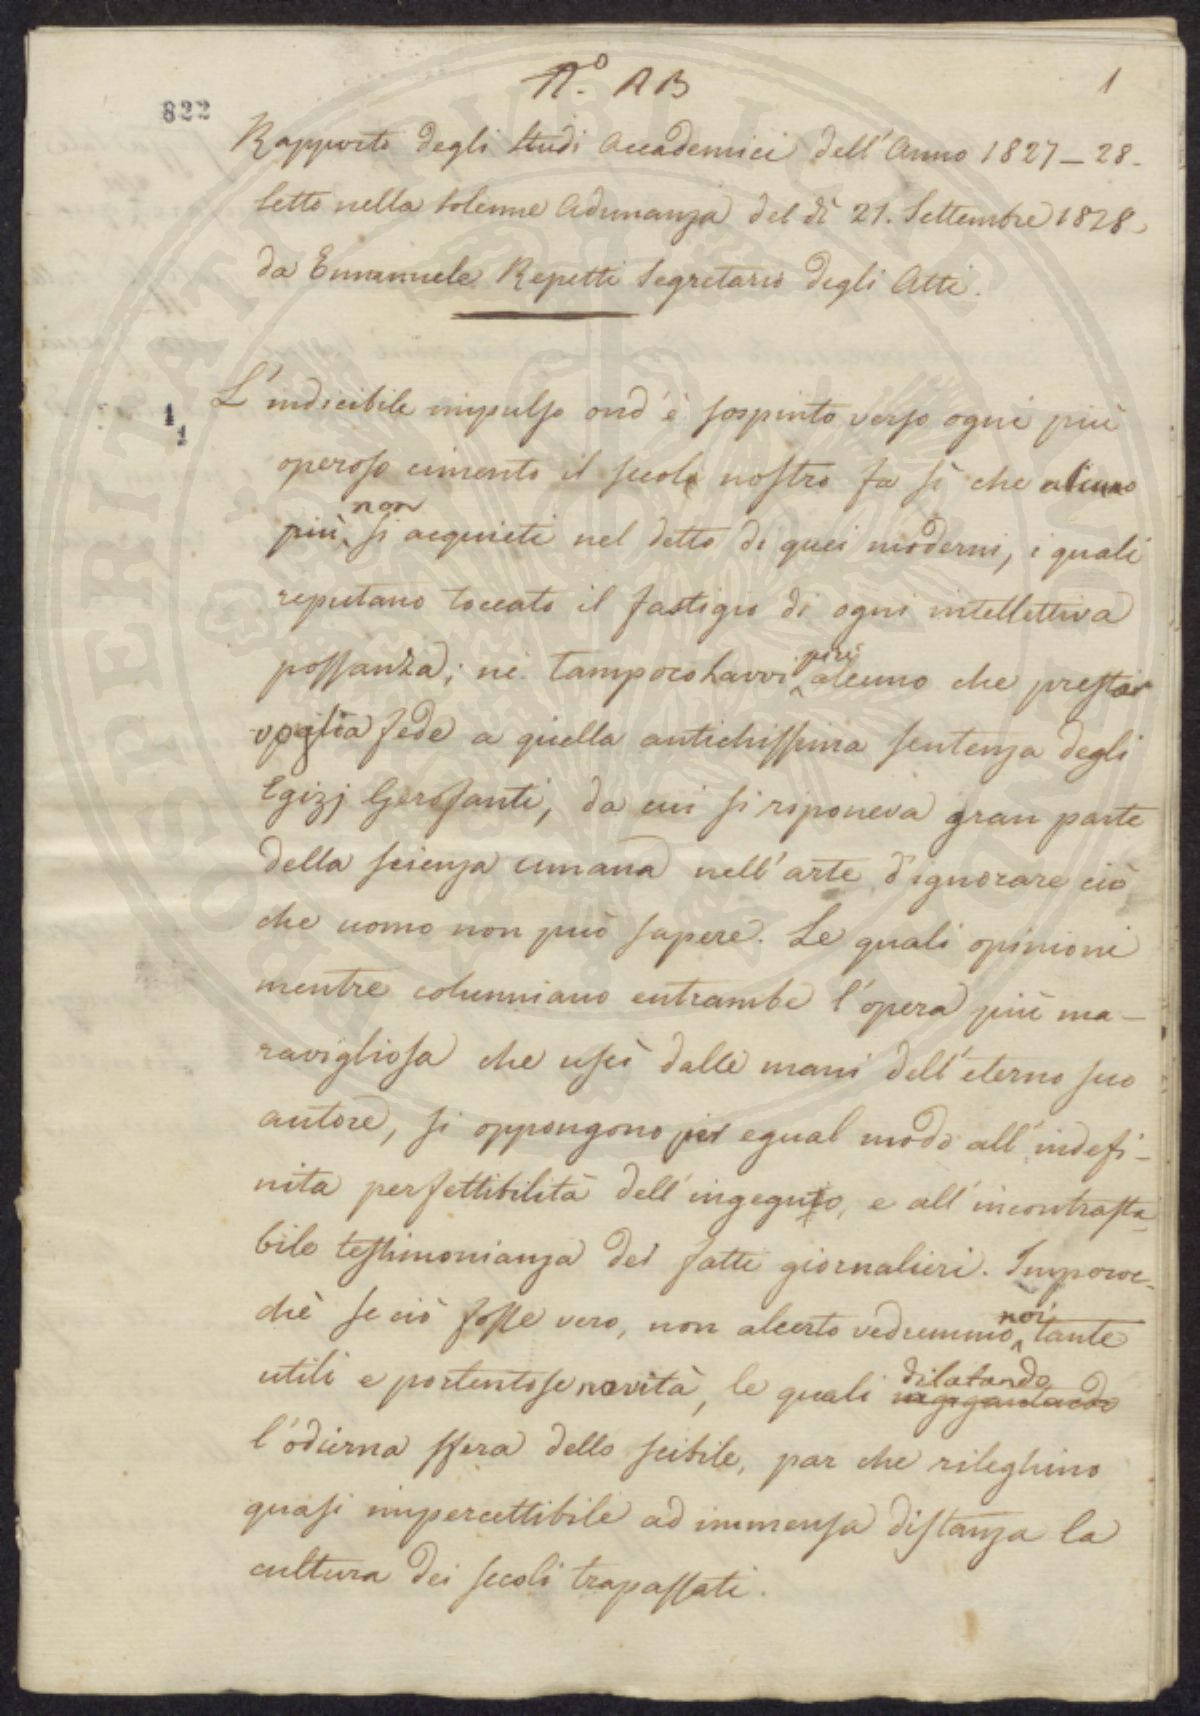 N.º AB
1
822
Rapporto degli Studi Accademici dell'Anno 1827–28.
letto nella solenne Adunanza del dì 21. Settembre 1828,
da Emmanuele Repetti Segretario degli Atti.
1
1
L'indicibile impulso ond'è sospinto verso ogni più
operoso cimento il secolo nostro fa sì che alcuno
non
più si acquieti nel detto di quei moderni, i quali
reputano toccato il fastigio di ogni intellettiva
più
possanza; nè tampoco havvi alcuno che prestar
voglia fede a quella antichissima sentenza degli
Egizj Gerofanti, da cui si riponeva gran parte
della scienza umana nell'arte d'ignorare ciò
che uomo non può sapere. Le quali opinioni
mentre calunniano entrambe l'opera più ma-
ravigliosa che uscì dalle mani dell'eterno suo
autore, si oppongono per egual modo all'indefi-
nita perfettibilità dell'ingegno, e all'incontrasta-
bile testimonianza dei fatti giornalieri. Imperoc-
noi
chè se ciò fosse vero, non alcerto vedremmo tante
dilatando
utili e portentose novità, le quali ingigantando
l'odierna sfera dello scibile, par che rileghino
quasi impercettibile ad immensa distanza la
cultura dei secoli trapassati.
PROSPERITATI PVBLICAE AVGENDAE